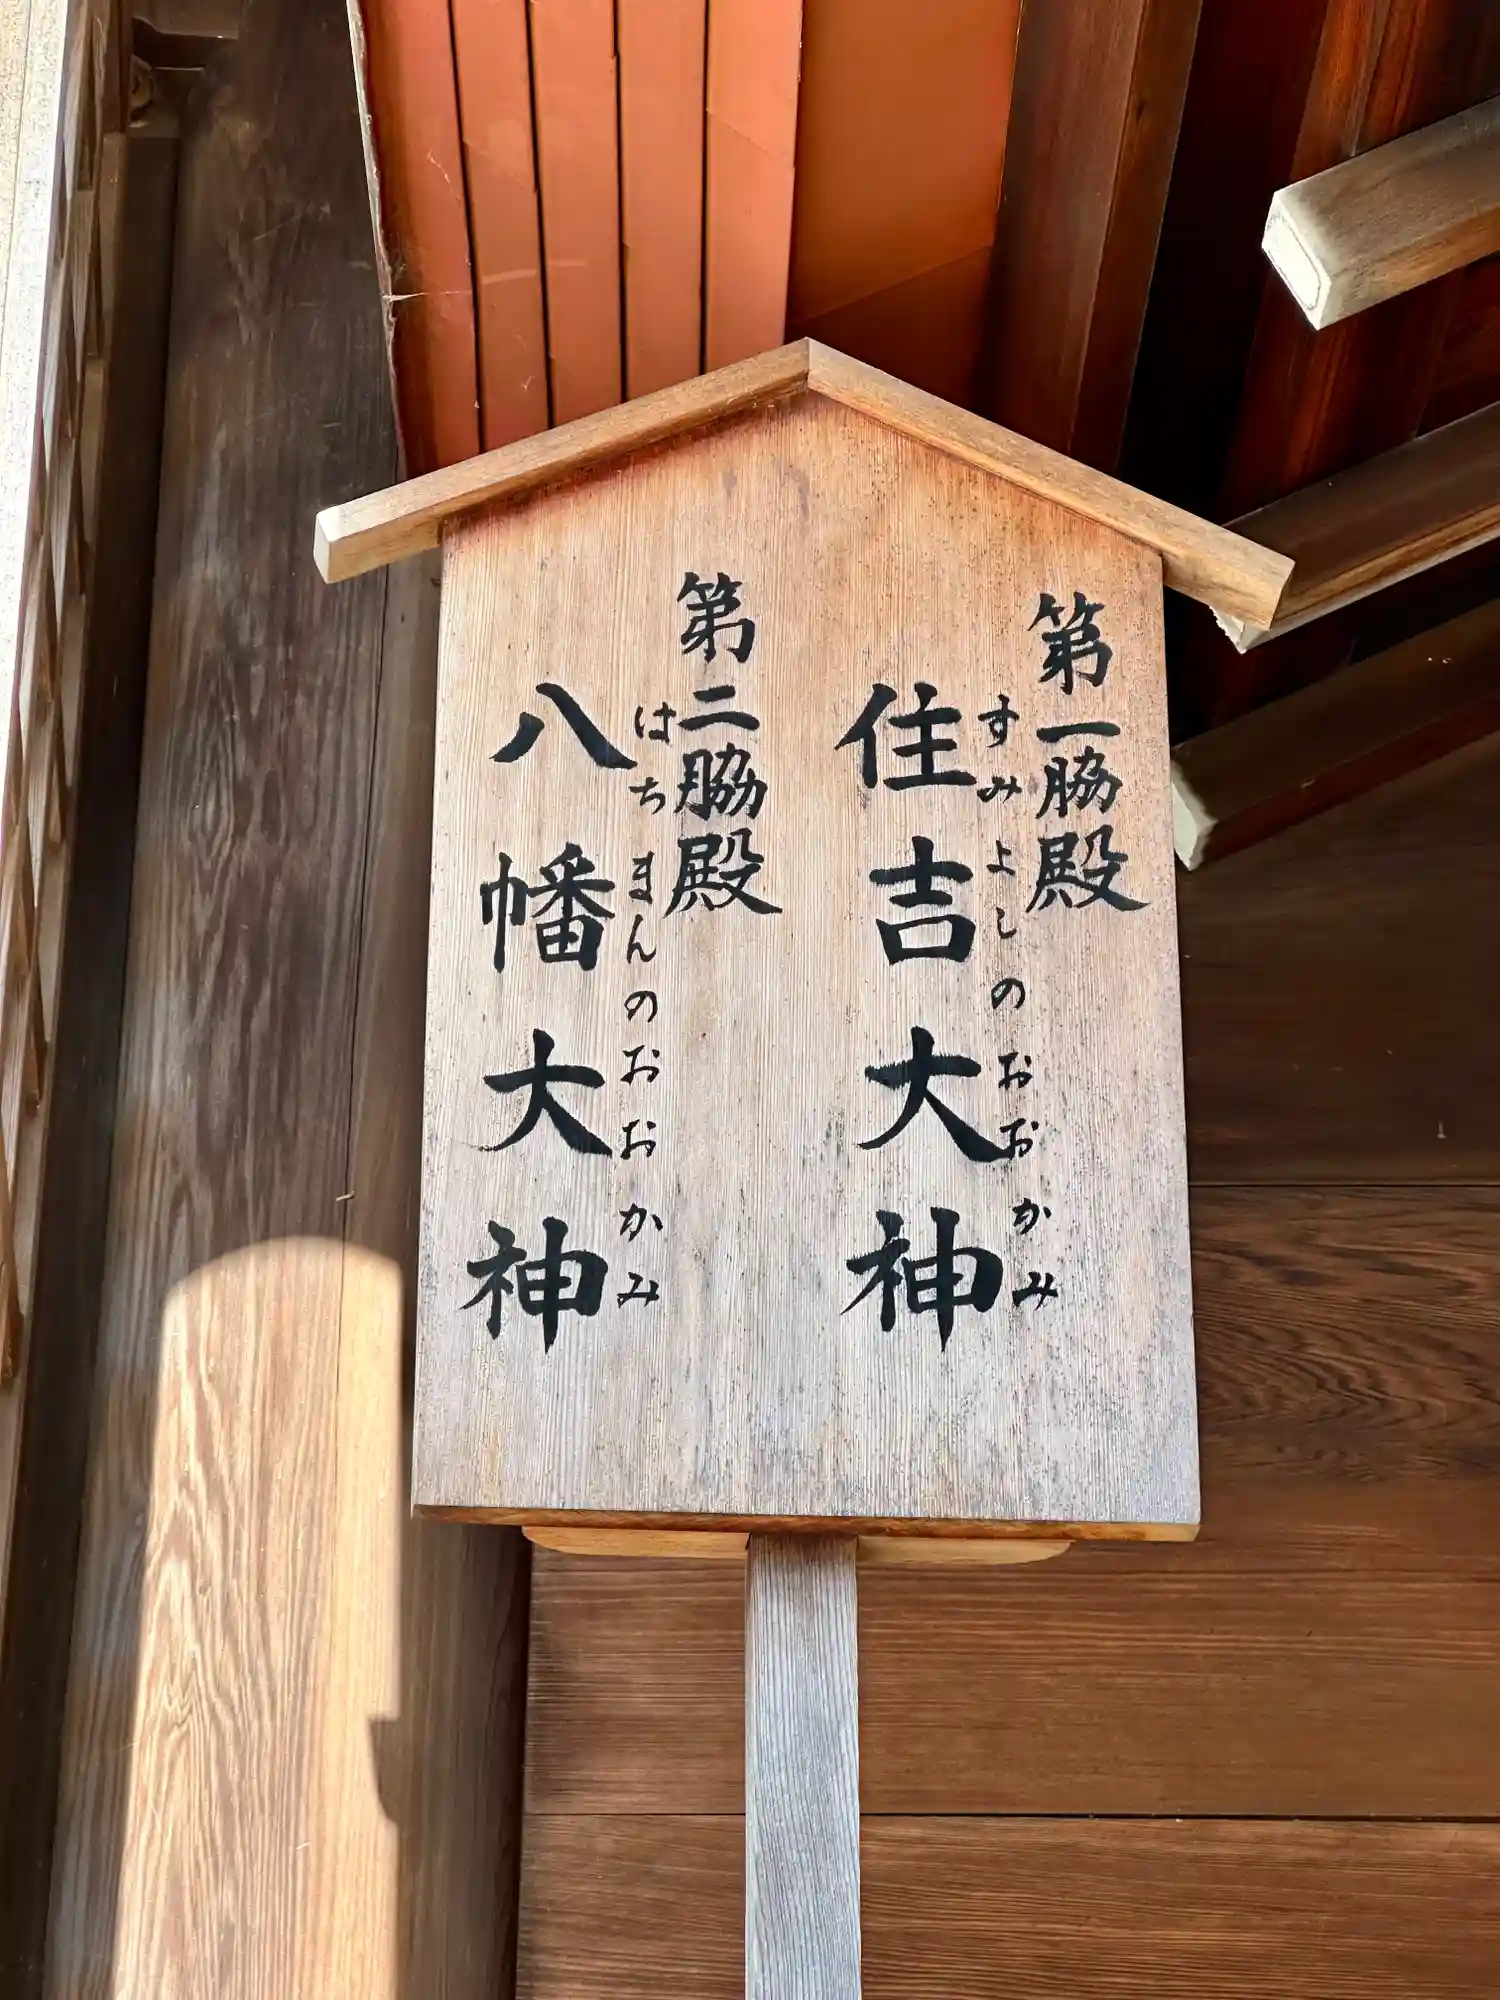 第一脇殿
すみよしのおおかみ
住吉大神
第二脇殿
はちまんのおおかみ
八幡大神